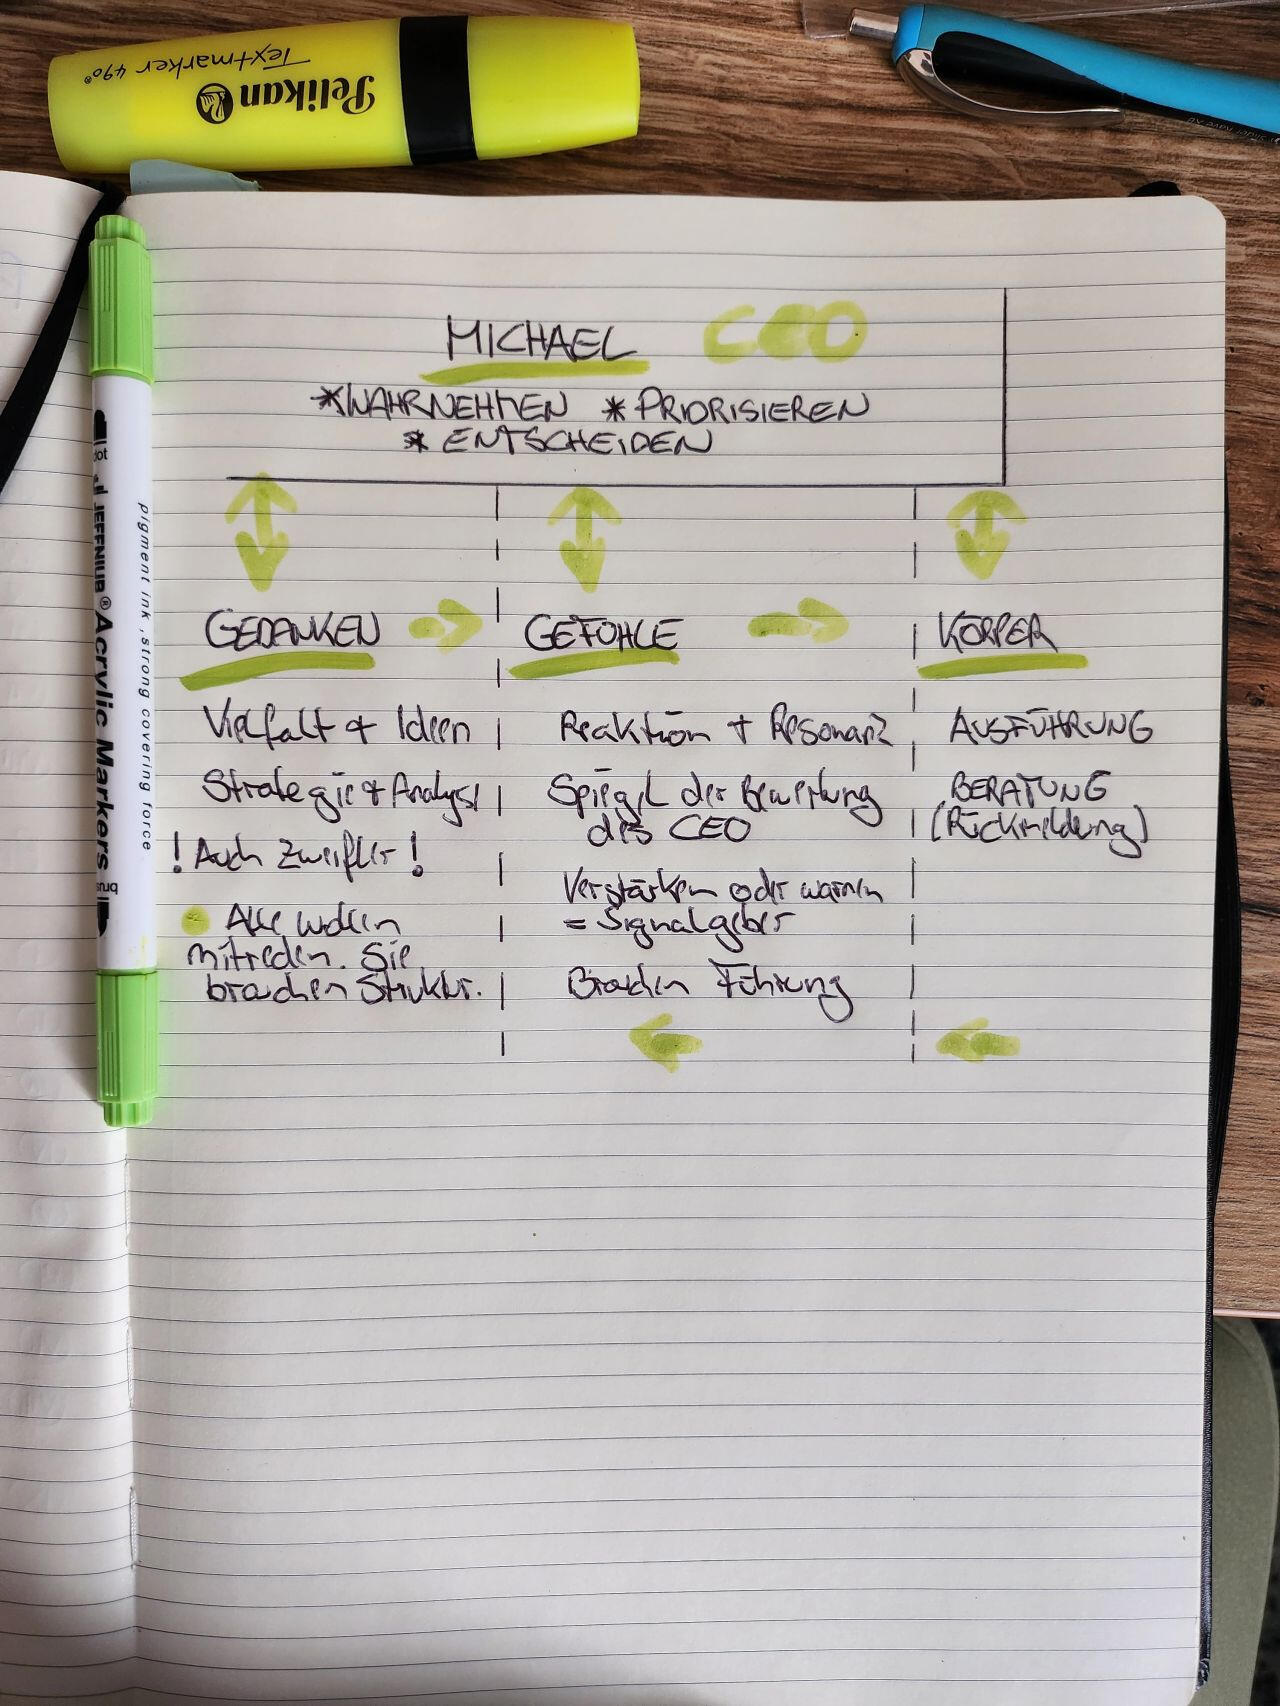 Pelikan
Textmarker 490®
MICHAEL CEO
*WAHRNEHMEN * PRIORISIEREN
* ENTSCHEIDEN
GEDANKEN
Vielfalt + Ideen
Strategie + Analyse
! Auch Zweifler !
Alle wollen
mitreden. Sie
brauchen Struktur.
GEFÜHLE
Reaktion + Resonanz
Spiegel der Bewertung
des CEO
Verstärken oder warnen
= Signalgeber
Brauchen Führung
KÖRPER
AUSFÜHRUNG
BERATUNG
(Rückmeldung)
dot
JEFFNIUB® Acrylic Markers
brus
pigment ink, strong covering force